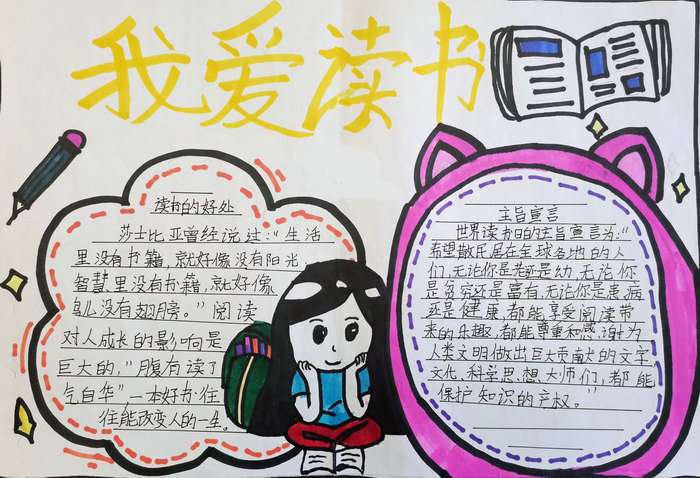 我爱读书
读书的好处
莎士比亚曾经说过：“生活
里没有书籍，就好像没有阳光，
智慧里没有书籍，就好像
鸟儿没有翅膀。”阅读
对人成长的影响是
巨大的，“腹有读了
气自华”一本好书往
往能改变人的一生。
主旨宣言
世界读书日的主旨宣言为：“
希望散氏居在全球各地的人
们，无论你是老还是幼，无论你
是贫穷还是富有，无论你是患病
还是健康，都能享受阅读带
来的乐趣，都能尊重和感谢为
人类文明做出巨大贡献的文学
文化、科学思想大师们，都能
保护知识的产权。”